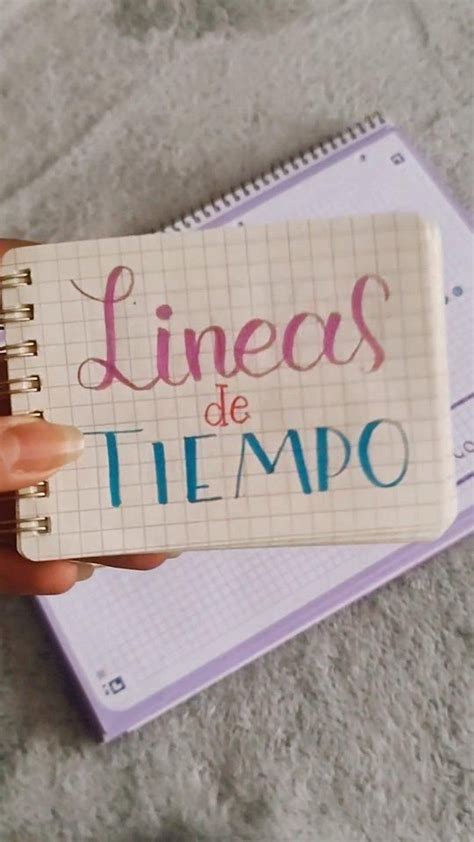 Lineas
de
TIEMPO